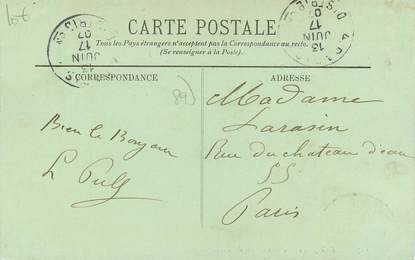 10€
CARTE POSTALE
Tous les Pays étrangers n'acceptent pas la Correspondance au recto.
(Se renseigner à la Poste).
CORRESPONDANCE
ADRESSE
89
Bien le Bonjour
Madame
Larasin
Rue du chateau d'eau
55
Paris
13
JUIN
07
17